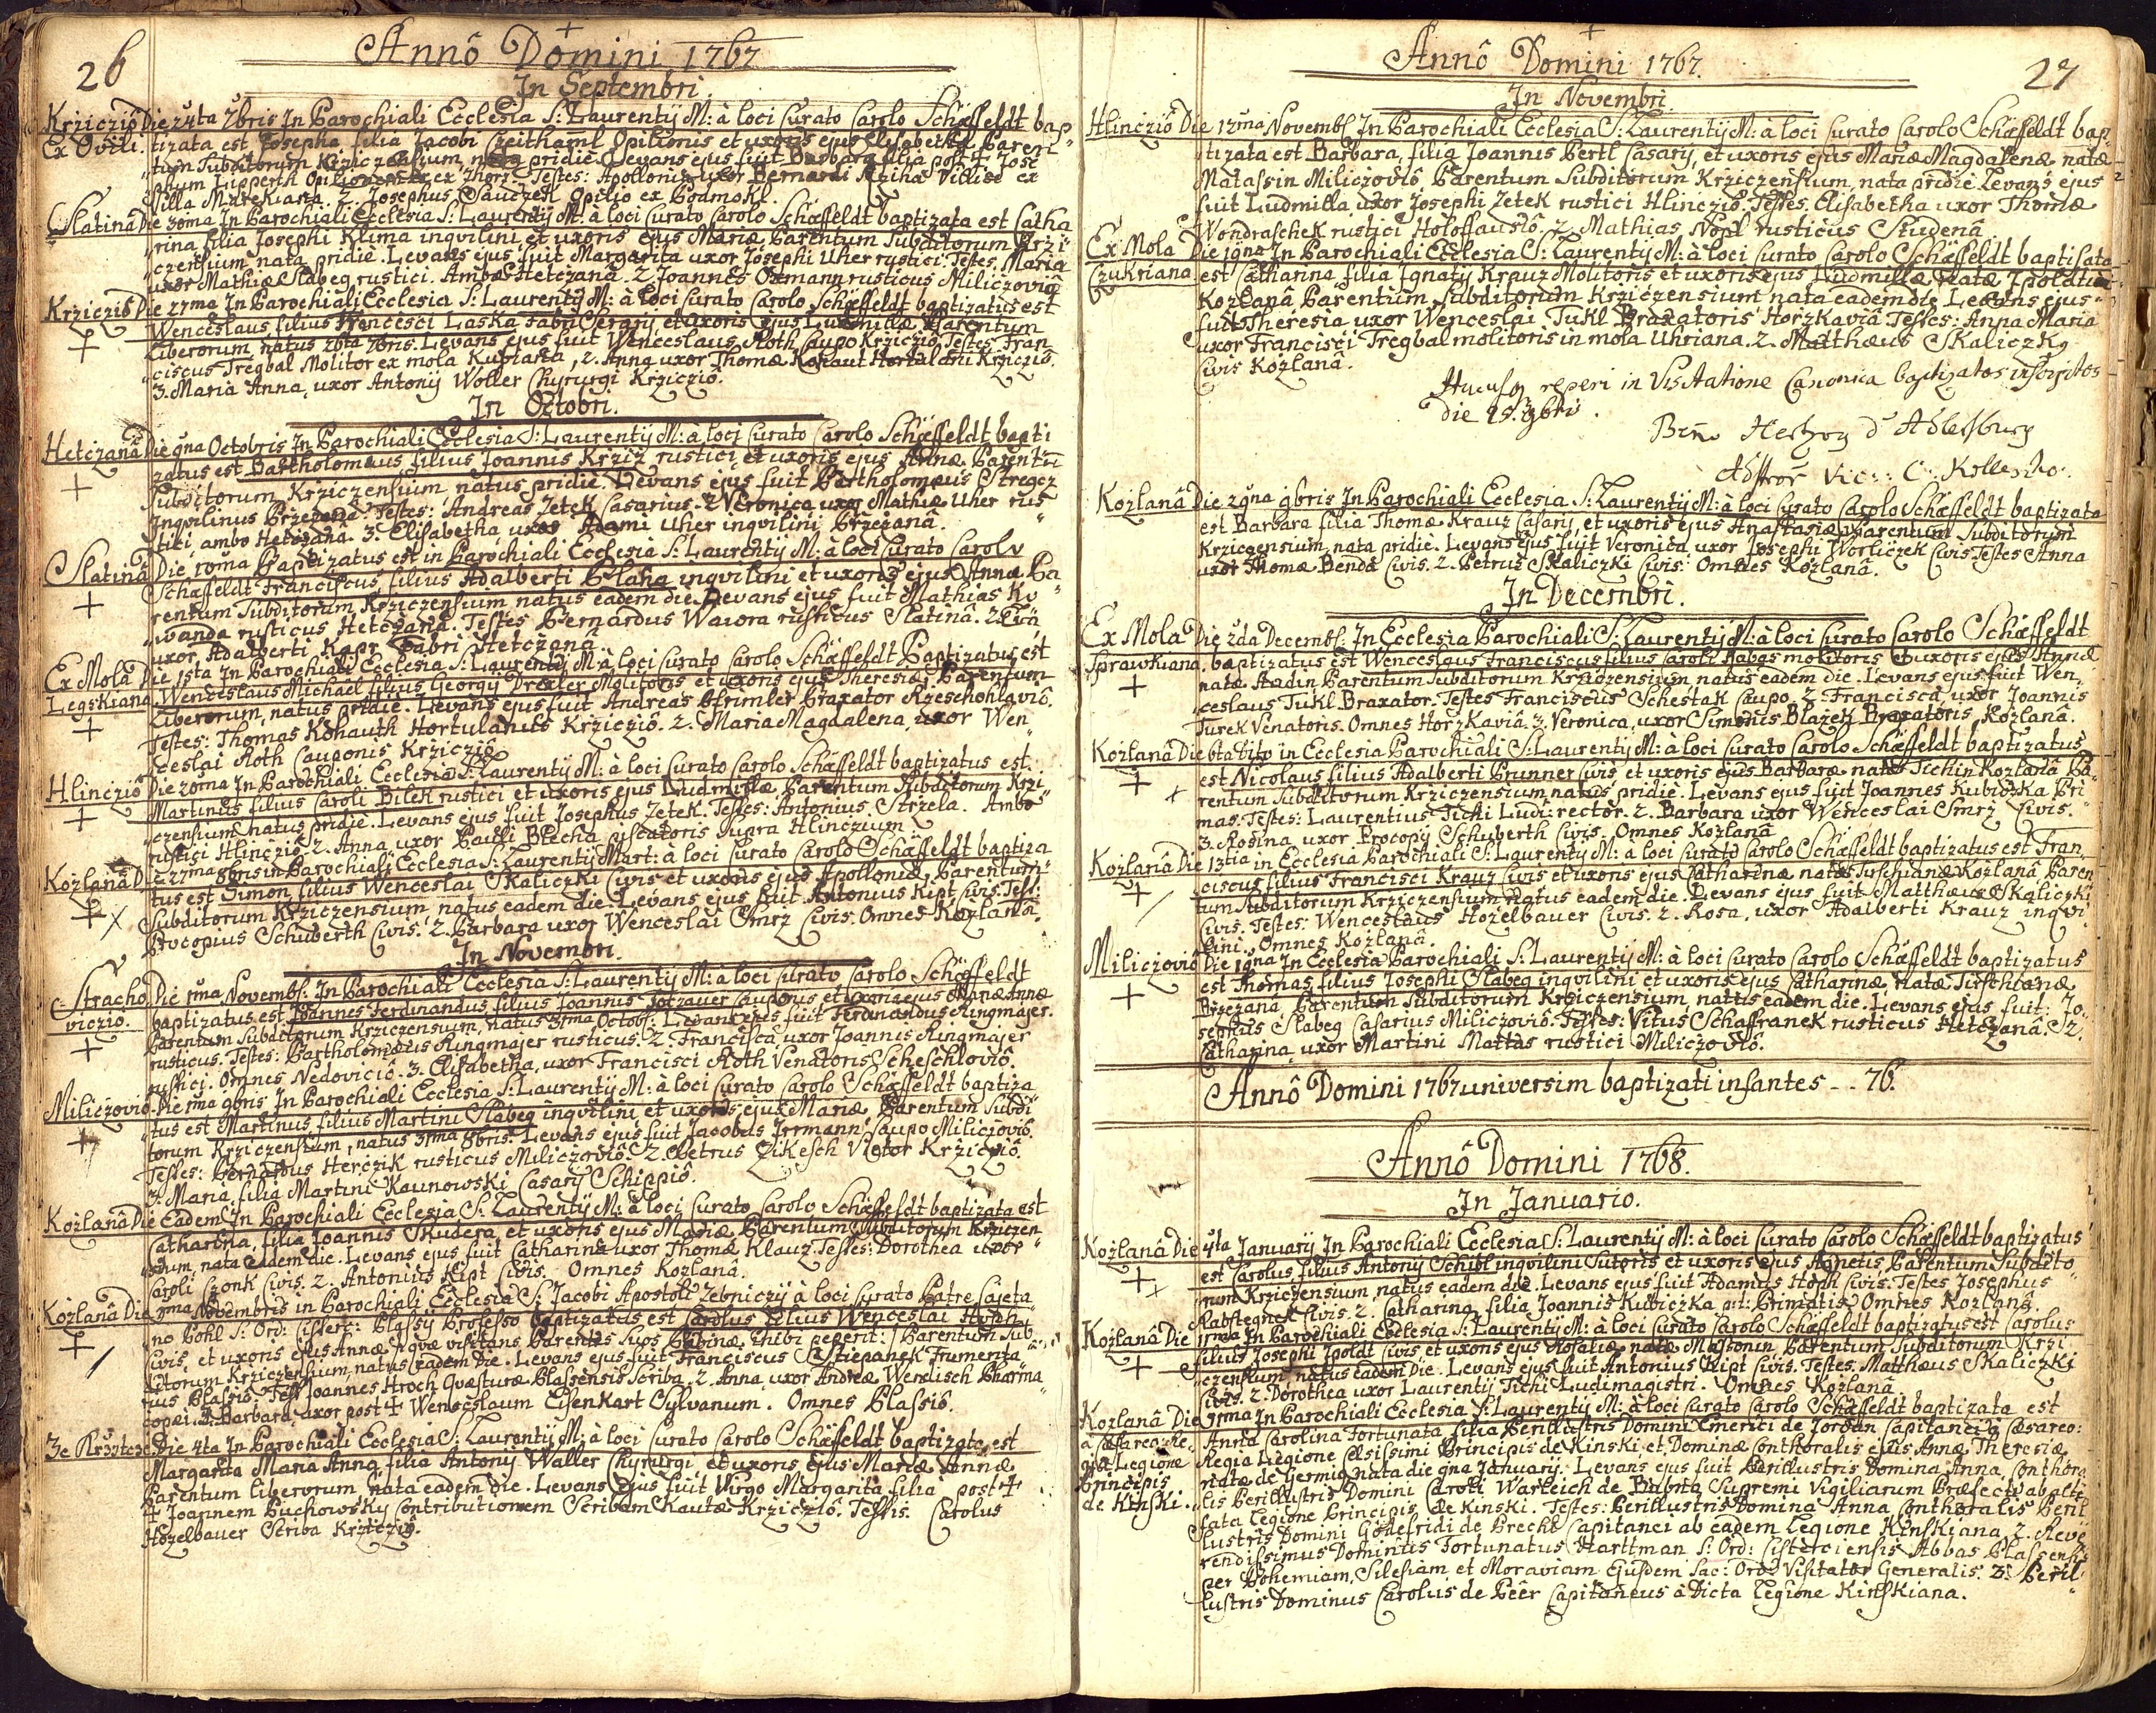 26
Annô Domini 1767
In Septembri.
Krzicziô Die 24ta 7bris In Parochiali Ecclesia S: Laurentij M: à loci Curato Carolo Schæffeldt bap„
Ex Ovili. tizata est Josepha filia Jacobi Opilionis et uxoris ejus Elisabethæ Paren„
tum Subditorum Krziczensium nata pridie. Levans ejus fuit Barbara filia post ☩ Jose„
phum Lipperth ex Zhorz. Testes: Apollonia uxor Bernardi Villici ex
Villa 2. Josephus Sauczek Opilio ex Podmokl.
Slatinâ Die 30ma In Parochiali Ecclesia S: Laurentij M: à loci Curato Carolo Schæffeldt baptizata est Catha„
rina filia Josephi Klima inqvilini et uxoris ejus Mariæ Parentum Subditorum Krzi„
czensium nata pridie. Levans ejus fuit Margarita uxor Josephi Uher rustici. Testes. Maria
uxor Mathiæ Slabeg rustici. Ambæ Hetczanâ. 2 Joannes Oxmann rusticus Miliczoviô
Krzicziô Die 27ma In Parochiali Ecclesia S: Laurentij M: à loci Curato Carolo Schæffeldt baptizatus est
Wenceslaus filius Laska Fabri et uxoris ejus Ludmillæ Parentum
Liberorum, natus 26ta 7bris. Levans ejus fuit Wenceslaus Roth Caupo Krziczio. Testes. Fran„
ciscus Tregbal Molitor ex mola 2. Anna uxor Thomæ Kohaut Hortulani Krziczio.
3. Maria Anna, uxor Antonij Woller Chyrurgi Krziczio.
In Octobri.
Hetczanâ Die 9na Octobris In Parochiali Ecclesia S: Laurentij M: à loci Curato Carolo Schæffeldt bapti
zatus est Bartholomæus filius Joannis Krziz rustici et uxoris ejus Annæ Parentū
Subditorum Krziczensium natus pridie. Levans ejus fuit Bartholomæus
Inqvilinus Brzezanâ. Testes: Andreas Zetek Casarius. 2 Veronica uxor Mathiæ Uher rus„
tici ambo Hetczanâ. 3. Elisabetha uxor Adami Uher inqvilini Brzezanâ.
Slatinâ Die 10ma Baptizatus est in Parochiali Ecclesia S: Laurentij M: à loci Curato Carolo
Schæffeldt Franciscus filius Adalberti inqvilini et uxoris ejus Annæ Pa„
rentum Subditorum Krziczensium natus eadem die. Levans ejus fuit Mathias
rusticus Hetczanâ. Testes Bernardus rusticus Slatinâ. 2 Eva
uxor Adalberti Kapr Fabri Hetczanâ.
Ex Mola Die 15ta In Parochiali Ecclesia S: Laurentij M: à loci Curato Carolo Schæffeldt Baptizatus est
Legskiana Wenceslaus Michael filius Georgij Drexler Molitoris et uxoris ejus Theresiæ Parentum
Liberorum, natus pridie. Levans ejus fuit Andreas Braxator Rzeschohlaviô.
Testes: Thomas Kohauth Hortulanus Krziczio. 2. Maria Magdalena, uxor Wen„
ceslai Roth Cauponis Krziczio.
Hlinczio Die 20ma In Parochiali Ecclesia S: Laurentij M: à loci Curato Carolo Schæffeldt baptizatus est
Martinus filius Caroli Bilek rustici et uxoris ejus Ludmillæ Parentum Subditorum Krzi„
czensium natus pridie. Levans ejus fuit Josephus Zetek. Testes: Antonius Strzela. Ambo
rustici Hlinczio. 2. Anna uxor Pauli Blecha piscatoris supra Hlinczium
Kozlanâ Die 27ma 8bris in Parochiali Ecclesia S: Laurentij Mart: à loci Curato Carolo Schæffeldt baptiza
tus est Simon filius Wenceslai Skaliczki Civis et uxoris ejus Apolloniæ Parentum
Subditorum Krziczensium natus eadem die. Levans ejus fuit Antonius Kipt Civis. Test:
Procopius Schuberth Civis. 2. Barbara uxor Wenceslai Smrz Civis. Omnes Kozlanâ.
In Novembri.
Stracho„ Die 1ma Novemb: In Parochiali Ecclesia S: Laurentij M: à loci Curato Carolo Schæffeldt
viczio. baptizatus est Joannes Ferdinandus filius Joannis Cauponis et uxoris ejus Mariæ Annæ
Parentum Subditorum Krziczensium, natus 31ma Octob: Levans ejus fuit Ferdinandus Ringmajer
rusticus. Testes: Bartholomæus Ringmajer rusticus. 2. Francisca, uxor Joannis Ringmajer
rustici. Omnes Nedoviciô. 3. Elisabetha, uxor Francisci Roth Venatoris Scheschloviô.
Miliczoviô Die 1ma 9bris In Parochiali Ecclesia S: Laurentij M: à loci Curato Carolo Schæffeldt baptiza
tus est Martinus filius Martini Slabeg inqvilini et uxoris ejus Mariæ, Parentum Subdi„
torum Krziczensium, natus 31ma 8bris. Levans ejus fuit Jacobus Irmann Caupo Miliczoviô.
Testes: Bernardus Herczik rusticus Miliczoviô. 2. Petrus Zikesch Viétor Krziczio.
3. Maria filia Martini Kaunowski Casarij Schippiô.
Kozlanâ Die Eadem In Parochiali Ecclesia S: Laurentij M: à loci Curato Carolo Schæffeldt baptizata est
Catharina, filia Joannis Skudera, et uxoris ejus Mariæ Parentum Subditorum Krziczen„
sium, nata eadem die. Levans ejus fuit Catharina uxor Thomæ Klauz. Testes: Dorothea uxor
Caroli Czonk Civis. 2. Antonius Kipt Civis. Omnes Kozlanâ.
Kozlanâ Die Novembris in Parochiali Ecclesia S: Jacobi Apostoli Zebniczij à loci Curato Patre Cajeta„
no Pohl S: Ord: Cisterc: Plassij Professo baptizatus est Carolus Filius Wenceslai
Civis, et uxoris ejus Annæ, qvæ visitans Parentes suos ibi peperit: Parentum Sub„
ditorum Krziczensium, natus eadem die. Levans ejus fuit Franciscus Stiepanek Frumenta„
rius Plassiô. Test: Joannes Hroch Quæsturæ Plassensis Scriba. 2. Anna uxor Andreæ Wendisch Pharma„
copæi 3. Barbara uxor post ☩ Wenceslaum Eisenkart Sylvanum. Omnes Plassiô.
Die 4ta In Parochiali Ecclesia S: Laurentij M: à loci Curato Carolo Schæffeldt baptizata est
Margarita Maria Anna filia Antonij Waller Chyrurgi et uxoris ejus Mariæ Annæ
Parentum liberorum, nata eadem die. Levans ejus fuit Virgo Margarita filia post ☩
Joannem Puchowsky Contributionem Scribam Krziczio. Testis. Carolus
Hozelbauer Scriba Krziczio.
27
Annô Domini 1767.
In Novembri.
Hlincziô Die 12ma Novemb: In Parochiali Ecclesia S: Laurentij M: à loci Curato Carolo Schæffeldt bap„
tizata est Barbara, filia Joannis Bertl Casarij, et uxoris ejus Mariæ Magdalenæ natæ
Matassin Miliczoviô Parentum Subditorum Krziczensium, nata pridie Levans ejus
fuit Ludmilla uxor Josephi Zetek rustici Hlinczio. Testes. Elisabetha uxor Thomæ
Wondraschek rustici Holoffausiô. 2. Mathias Nopl rusticus Studenâ.
Ex Mola Die 19na In Parochiali Ecclesia S: Laurentij M: à loci Curato Carolo Schæffeldt baptisata
Czukriana est Catharina filia Ignatij Krauz Molitoris et uxoris ejus Ludmillæ natæ Ipoldtin
Kozlanâ Parentum Subditorum Krziczensium nata eadem die Levans ejus
fuit Theresia uxor Wenceslai Tukl Braxatoris Horzkaviâ. Testes: Anna Maria
uxor Francisci Tregbal molitoris in mola Uhriana. 2. Mathæus Skaliczky
Civis Kozlanâ.
Hucusq reperi in Visitatione Canonica baptizatos inscriptos
die 25. 9bris.
Hertzog
Vic: C:
Kozlanâ Die 29na 9bris In Parochiali Ecclesia S: Laurentij M: à loci Curato Carolo Schæffeldt baptizata
est Barbara filia Thomæ Krauz Casarij, et uxoris ejus Anastasiæ Parentum Subditorum
Krziczensium nata pridie. Levans ejus fuit Veronica uxor Josephi Worliczek Civis Testes Anna
uxor Thomæ Benda Civis. 2. Petrus Skaliczki Civis: Omnes Kozlanâ.
In Decembri.
Ex Mola Die 2da Decemb: In Ecclesia Parochiali S: Laurentij M: à loci Curato Carolo Schæffeldt
Sprawkiana baptizatus est Wenceslaus Franciscus filius Caroli molitoris et uxoris ejus Annæ
natæ Parentum Subditorum Krziczensium natus eadem die. Levans ejus fuit Wen„
ceslaus Tukl Braxator. Testes Franciscus Schestak Caupo. 2. Francisca, uxor Joannis
Turek Venatoris. Omnes Horzkaviâ. 3. Veronica, uxor Simonis Blazeg Braxatoris Kozlanâ.
Kozlanâ Die 6ta dito in Ecclesia Parochiali S: Laurentij M: à loci Curato Carolo Schæffeldt baptizatus
est Nicolaus filius Adalberti Brunner Civis et uxoris ejus Barbaræ natæ Tichin Kozlanâ Pa„
rentum Subditorum Krziczensium natus pridie. Levans ejus fuit Joannes Kubiczka Pri„
mas. Testes: Laurentius Tichi Ludi: rector. 2. Barbara uxor Wenceslai Smrz Civis.
3. Rosina uxor Procopij Schuberth Civis. Omnes Kozlanâ
Kozlanâ Die 13tia in Ecclesia Parochiali S: Laurentij M: à loci Curato Carolo Schæffeldt baptizatus est Fran„
ciscus filius Francisci Krauz Civis et uxoris ejus Catharinæ natæ Kozlanâ Paren„
tum Subditorum Krziczensium natus eadem die. Levans ejus fuit Matthæus Skaliczki
Civis. Testes: Wenceslaus Hozelbauer Civis. 2. Rosa, uxor Adalberti Krauz inqvi„
lini. Omnes Kozlanâ.
Miliczoviô Die 19na In Ecclesia Parochiali S: Laurentij M: à loci Curato Carolo Schæffeldt baptizatus
est Thomas, filius Josephi Slabeg inqvilini et uxoris ejus Catharinæ, natæ
Brzezanâ Parentum Subditorum Krziczensium natus eadem die. Levans ejus fuit: Jo„
sephus Slabeg Casarius Miliczoviô. Testes: Vitus Schaffranek rusticus Hetczanâ. 2.
Catharina, uxor Martini Mattas rustici Miliczoviô.
Annô Domini 1767 universim baptizati infantes - - 76.
Annô Domini 1768.
In Januario.
Kozlanâ Die 4ta Januarij In Parochiali Ecclesia S: Laurentij M: à loci Curato Carolo Schæffeldt baptizatus
est Carolus, filius Antonij Schibl inqvilini Sutoris et uxoris ejus Agnetis Parentum Subdito„
rum Krziczensium natus eadem die. Levans ejus fuit Adamus Hoph Civis. Testes Josephus
Rabstegnek Civis. 2. Catharina filia Joannis Kubiczka p:t: Primatis. Omnes Kozlanâ.
Kozlanâ Die In Parochiali Ecclesia S: Laurentij M: à loci Curato Carolo Schæffeldt baptizatus est Carolus
filius Josephi Ipoldt Civis et uxoris ejus Rosaliæ natæ Massonin, Parentum Subditorum Krzi„
czensium natus eadem Die. Levans ejus fuit Antonius Kipt Civis. Testes: Matthæus Skaliczki
Civis. 2. Dorothea uxor Laurentij Tichi Ludimagistri. Omnes Kozlanâ.
Kozlanâ Die In Parochiali Ecclesia S: Laurentij M: à loci Curato Carolo Schæffeldt baptizata est
à Cæsarea Re„ Anna Carolina Fortunata, filia Perillustris Domini Emerici de Jordan, Capitanei à Cæsareo:
gia Legione Regia Legione Celsissimi Principis de Kinski, et Dominæ Conthoralis ejus Annæ Theresiæ
Principis natæ de Germig nata die 9na Januarij. Levans ejus fuit Perillustris Domina Anna, Conthora„
de Kinski. lis Perillustris Domini Caroli Warleich de Bubna Supremi Vigiliarum Præfecti ab alte
fata Legione Principis de Kinski. Testes: Perillustris Domina Anna Conthoralis Peril„
lustris Domini Godefridi de Brecht Capitanei ab eadem Legione Kinskiana 2. Reve„
rendissimus Dominus Fortunatus Harttman S: Ord: Cisterciensis Abbas Plassensis
per Bohemiam, Silesiam et Moraviam Ejusdem Sac: Ord: Visitator Generalis 3. Peril„
lustris Dominus Carolus de Peèr Capitaneus à Dicta Legione Kinskiana.